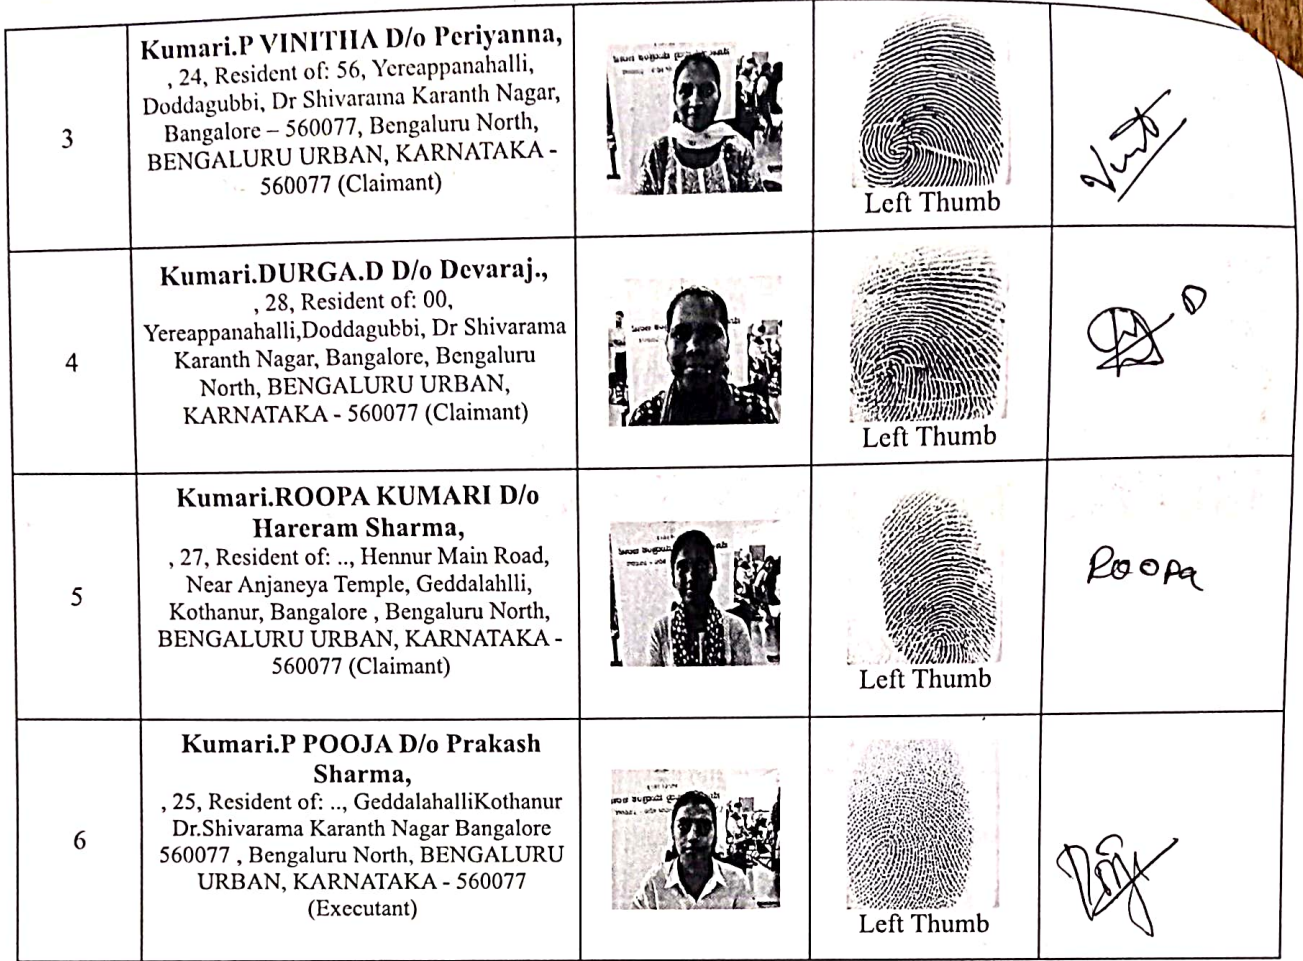 3
Kumari.P VINITHA D/o Periyanna,
, 24, Resident of: 56, Yereappanahalli,
Doddagubbi, Dr Shivarama Karanth Nagar,
Bangalore – 560077, Bengaluru North,
BENGALURU URBAN, KARNATAKA -
560077 (Claimant)
Left Thumb
4
Kumari.DURGA.D D/o Devaraj.,
, 28, Resident of: 00,
Yereappanahalli,Doddagubbi, Dr Shivarama
Karanth Nagar, Bangalore, Bengaluru
North, BENGALURU URBAN,
KARNATAKA - 560077 (Claimant)
Left Thumb
D
5
Kumari.ROOPA KUMARI D/o
Hareram Sharma,
, 27, Resident of: .., Hennur Main Road,
Near Anjaneya Temple, Geddalahlli,
Kothanur, Bangalore , Bengaluru North,
BENGALURU URBAN, KARNATAKA -
560077 (Claimant)
Left Thumb
Roopa
6
Kumari.P POOJA D/o Prakash
Sharma,
, 25, Resident of: .., GeddalahalliKothanur
Dr.Shivarama Karanth Nagar Bangalore
560077 , Bengaluru North, BENGALURU
URBAN, KARNATAKA - 560077
(Executant)
Left Thumb